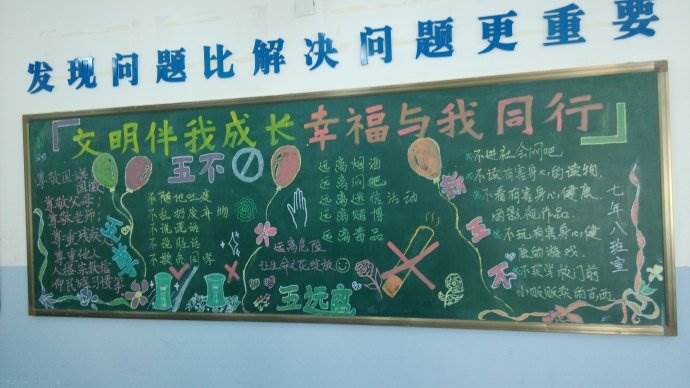 发现问题比解决问题更重要
文明伴我成长 幸福与我同行
尊敬国旗
国徽
尊敬父母
尊敬老师
尊重残疾
尊重他人
五尊
五不
不随地吐痰
不乱扔废弃物
不说谎话
不说脏话
不欺负同学
远离烟酒
远离网吧
远离迷信活动
远离赌博
远离毒品
远离危险
让生命之花绽放
五远离
新五不
不进社会网吧
不读有害身心的读物
不看有害身心健康
的影视作品
不玩有害身心健
康的游戏
不买学校门前
小贩贩卖的东西
七年八班宣